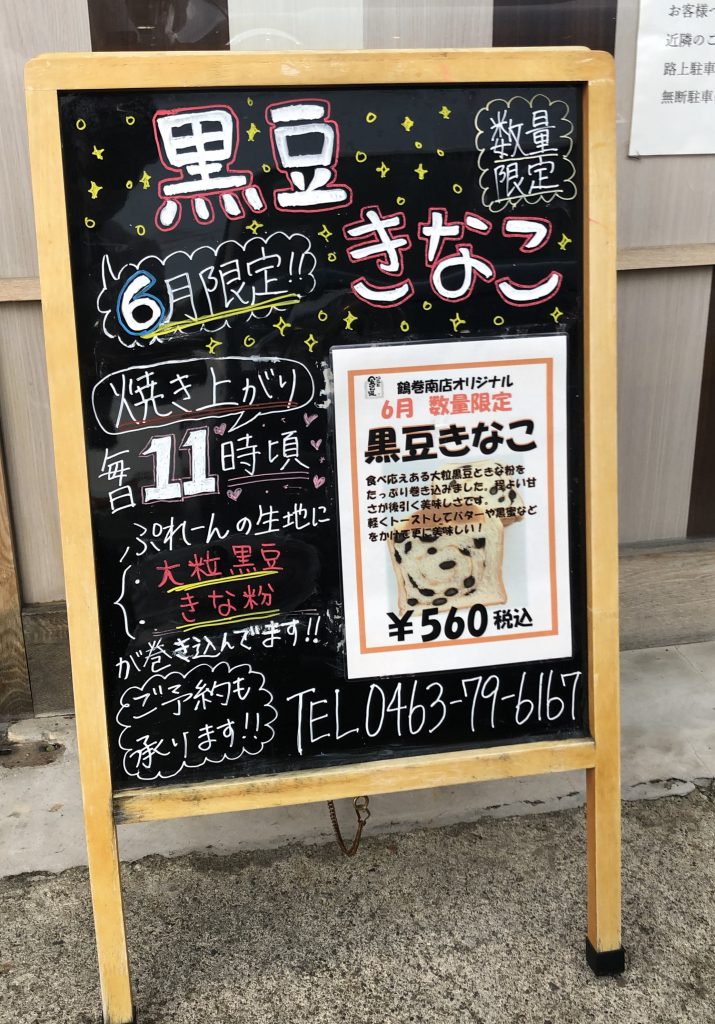 お客様
近隣のこ
路上駐車
無断駐車
黒豆
きなこ
数量
限定
6月限定!!
焼き上がり
毎日11時頃
ぷれーんの生地に
大粒黒豆
きな粉
が巻き込んでます!!
ご予約も
承ります!!
鶴巻南店オリジナル
6月 数量限定
黒豆きなこ
食べ応えある大粒黒豆ときな粉を
たっぷり巻き込みました。程よい甘
さが後引く美味しさです。
軽くトーストしてバターや黒蜜など
をかけて更に美味しい!
¥560税込
TEL 0463-79-6167